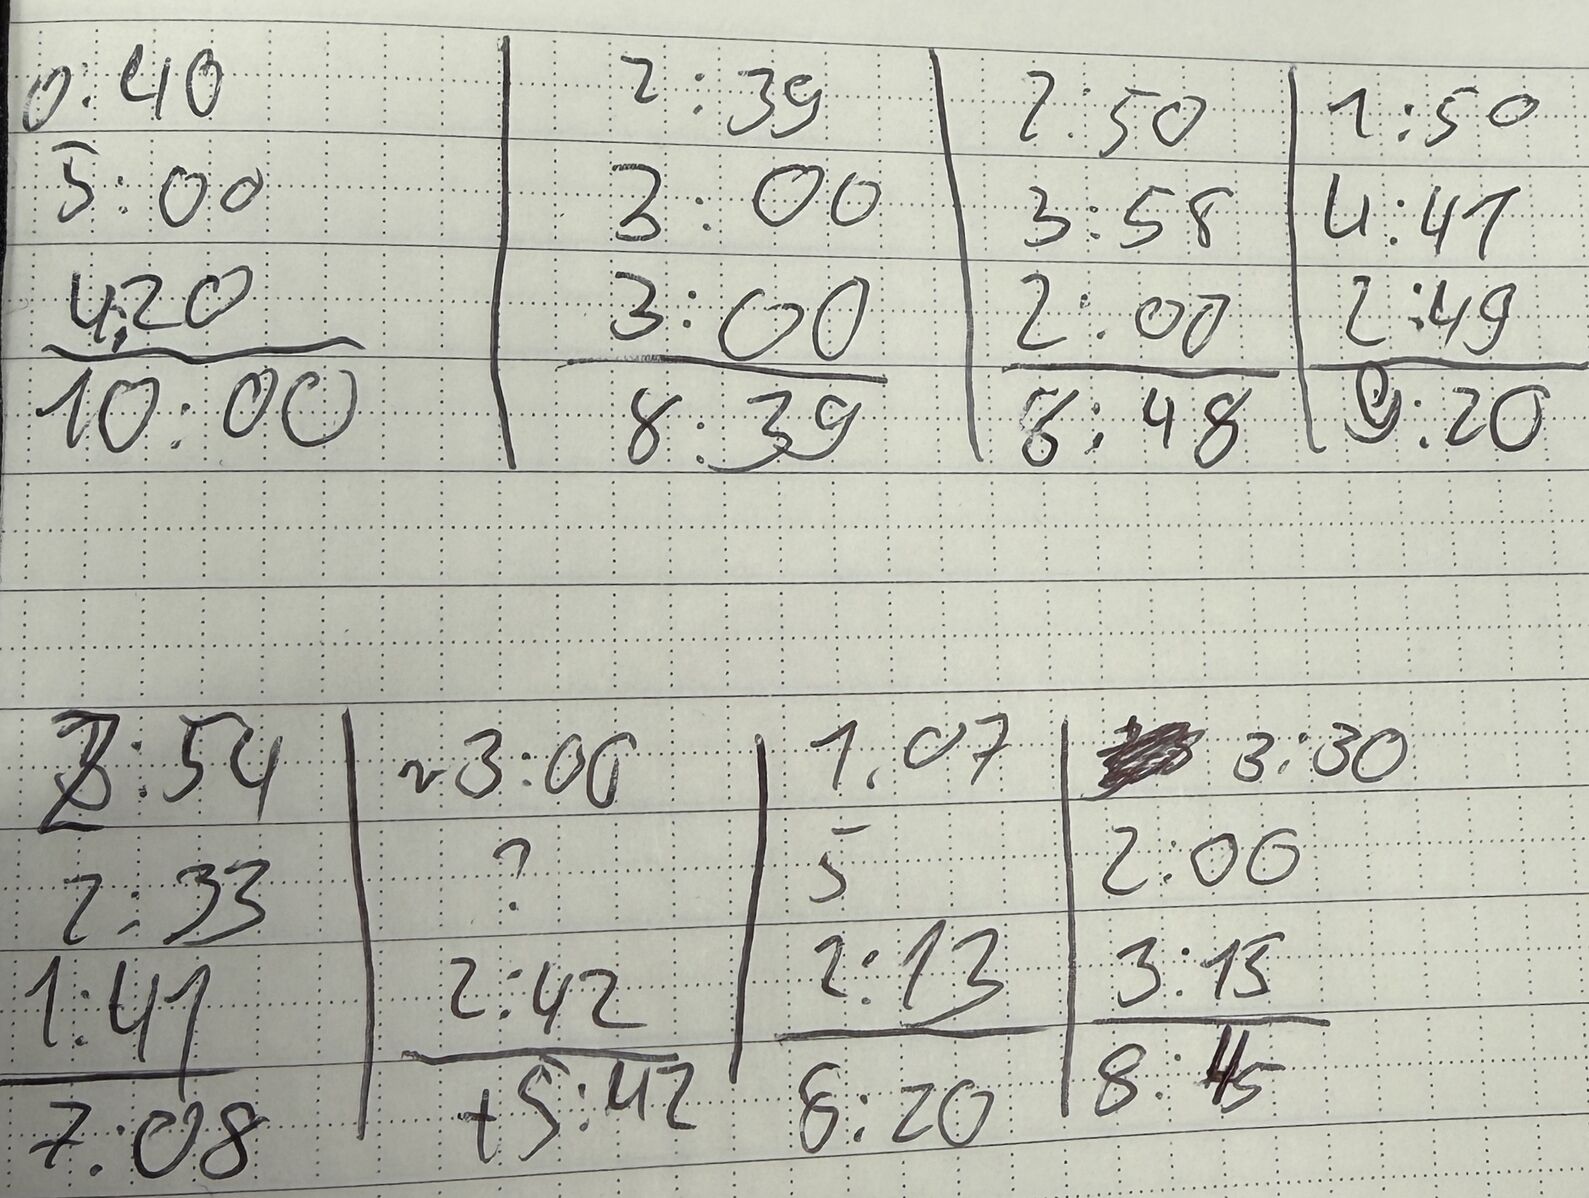 0:40 2:39 2:50 1:50
5:00 3:00 3:58 4:41
4:20 3:00 2:00 2:49
10:00 8:39 8:48 9:20
2:54 ~3:00 1:07 3:30
2:33 ? 5 2:00
1:41 2:42 2:13 3:15
7:08 +5:42 8:20 8:45